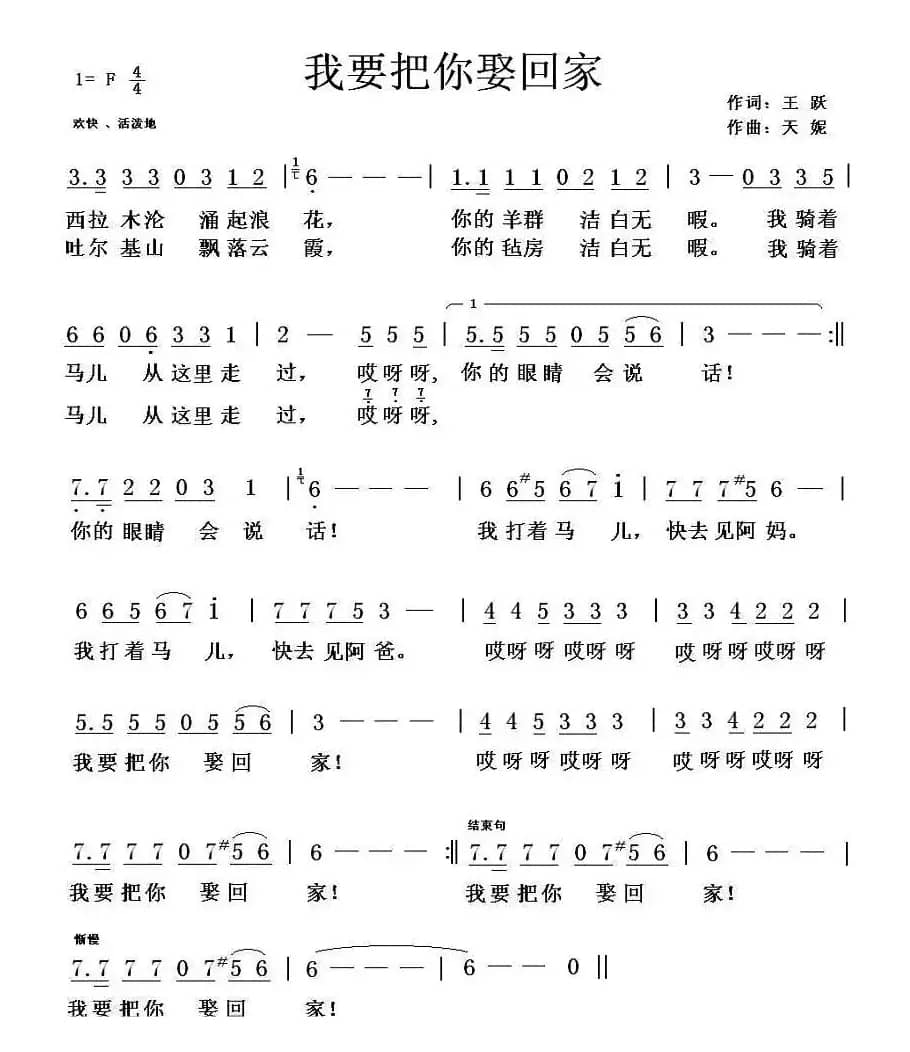 我要把你娶回家
1= F 4/4
欢快 、活泼地
作词：王 跃
作曲：天 妮
3.3 3 3 0 3 1 2 | 6 — — — | 1.1 1 1 0 2 1 2 | 3 — 0 3 3 5 |
西拉 木沦 涌起浪 花， 你的羊群 洁白无 暇。 我骑着
吐尔 基山 飘落云 霞， 你的毡房 洁白无 暇。 我骑着
1
6 6 0 6 3 3 1 | 2 — 5 5 5 | 5.5 5 5 0 5 5 6 | 3 — — — :||
马儿 从这里走 过， 哎呀呀, 你的眼睛 会说 话！
7 7 7
马儿 从这里走 过， 哎呀呀,
7.7 2 2 0 3 1 | 6 — — — | 6 6 #5 6 7 i | 7 7 7 #5 6 — |
你的 眼睛 会 说 话！ 我打着马 儿， 快去见阿妈。
6 6 5 6 7 i | 7 7 7 5 3 — | 4 4 5 3 3 3 | 3 3 4 2 2 2 |
我打着马 儿， 快去见阿爸。 哎呀呀哎呀呀 哎呀呀哎呀呀
5.5 5 5 0 5 5 6 | 3 — — — | 4 4 5 3 3 3 | 3 3 4 2 2 2 |
我要把你 娶回 家！ 哎呀呀哎呀呀 哎呀呀哎呀呀
结束句
7.7 7 7 0 7 #5 6 | 6 — — — :|| 7.7 7 7 0 7 #5 6 | 6 — — — |
我要把你 娶回 家！ 我要把你 娶回 家！
渐慢
7.7 7 7 0 7 #5 6 | 6 — — — | 6 — — 0 ||
我要把你 娶回 家！